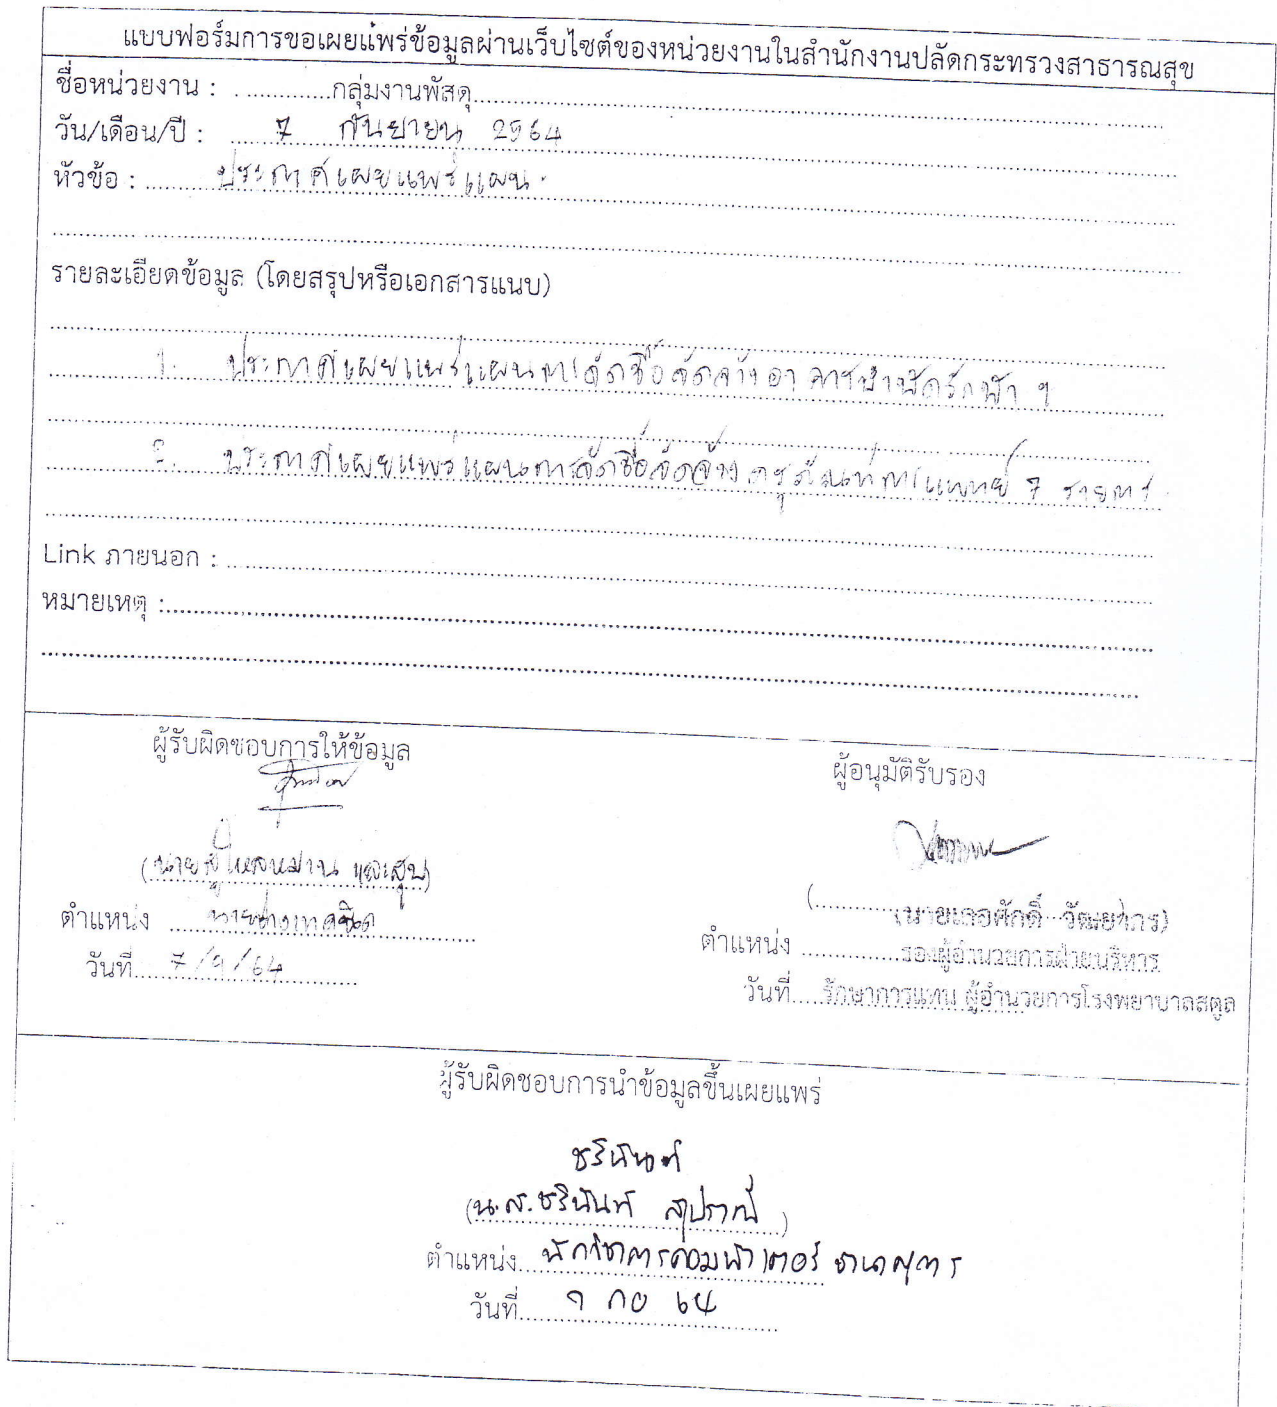 แบบฟอร์มการขอเผยแพร่ข้อมูลผ่านเว็บไซต์ของหน่วยงานในสำนักงานปลัดกระทรวงสาธารณสุข
ชื่อหน่วยงาน : กลุ่มงานพัสดุ
วัน/เดือน/ปี : 7 กันยายน 2564
หัวข้อ : ประกาศเผยแพร่แผน
รายละเอียดข้อมูล (โดยสรุปหรือเอกสารแนบ)
1. ประกาศเผยแพร่แผนการจัดซื้อจัดจ้างอาคารบำบัดรักษา ฯ
2. ประกาศเผยแพร่แผนการจัดซื้อจัดจ้าง ครุภัณฑ์การแพทย์ 7 รายการ
Link ภายนอก :
หมายเหตุ :
ผู้รับผิดชอบการให้ข้อมูล
ผู้อนุมัติรับรอง
(นาย
ตำแหน่ง นายช่างเทคนิค
วันที่ 7/9/64
(นายเกอศักดิ์
ตำแหน่ง รองผู้อำนวยการฝ่ายบริหาร
วันที่ รักษาการแทน ผู้อำนวยการโรงพยาบาลสตูล
ผู้รับผิดชอบการนำข้อมูลขึ้นเผยแพร่
ชรินันท์
(น.ส.ชรินันท์ สุปราณี)
ตำแหน่ง นักวิชาการคอมพิวเตอร์
วันที่ ๗ กย ๖๔